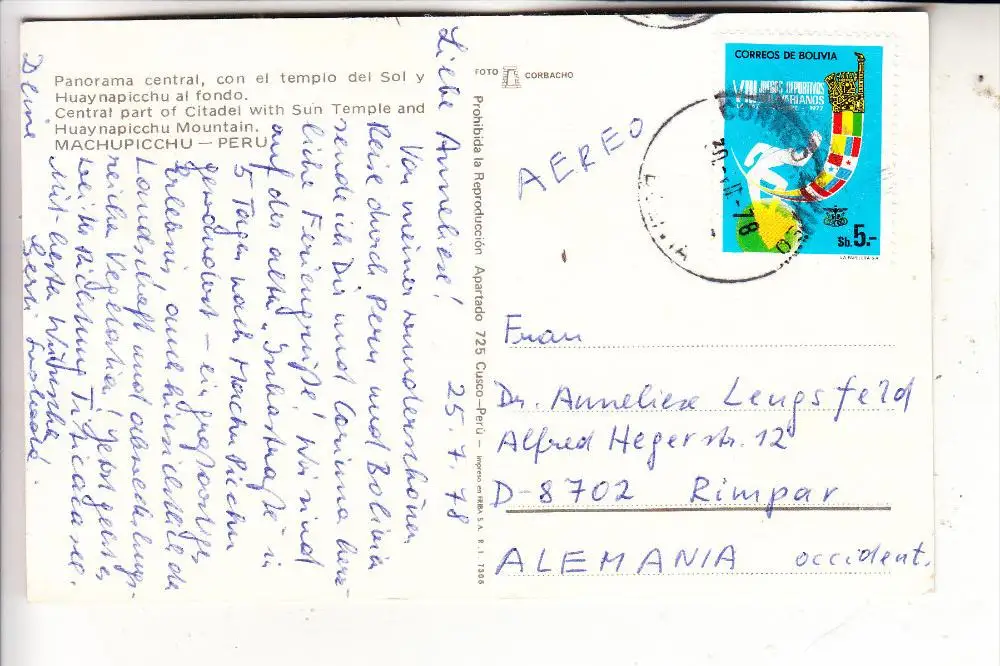 Panorama central, con el templo del Sol y
Huaynapicchu al fondo.
Central part of Citadel with Sun Temple and
Huaynapicchu Mountain.
MACHUPICCHU — PERU
25.7.78
Liebe Anneliese!
Von meiner wunderschönen
Reise durch Peru und Bolivia
sende ich Dir und Corinna herz-
liche Feriengrüße! Wir sind
auf der alten "Inkastraße" in
5 Tagen nach Machu Picchu
gewandert – ein großartiges
Erlebnis, auch hinsichtlich der
Landschaft und abwechslungs-
reichen Vegetation! Jetzt geht es
weiter Richtung Titicacasee.
Mit besten Wünschen
Deine
FOTO CORBACHO
Prohibida la Reproducción Apartado 725 Cusco-Perú - Impreso en FRIBA S.A. R.I. 7306
AEREO
CORREOS DE BOLIVIA
VIII JUEGOS DEPORTIVOS
BOLIVARIANOS
1977
Sb. 5.-
Frau
Dr. Anneliese Lengsfeld
Alfred Hegerstr. 12
D-8702 Rimpar
ALEMANIA occident.